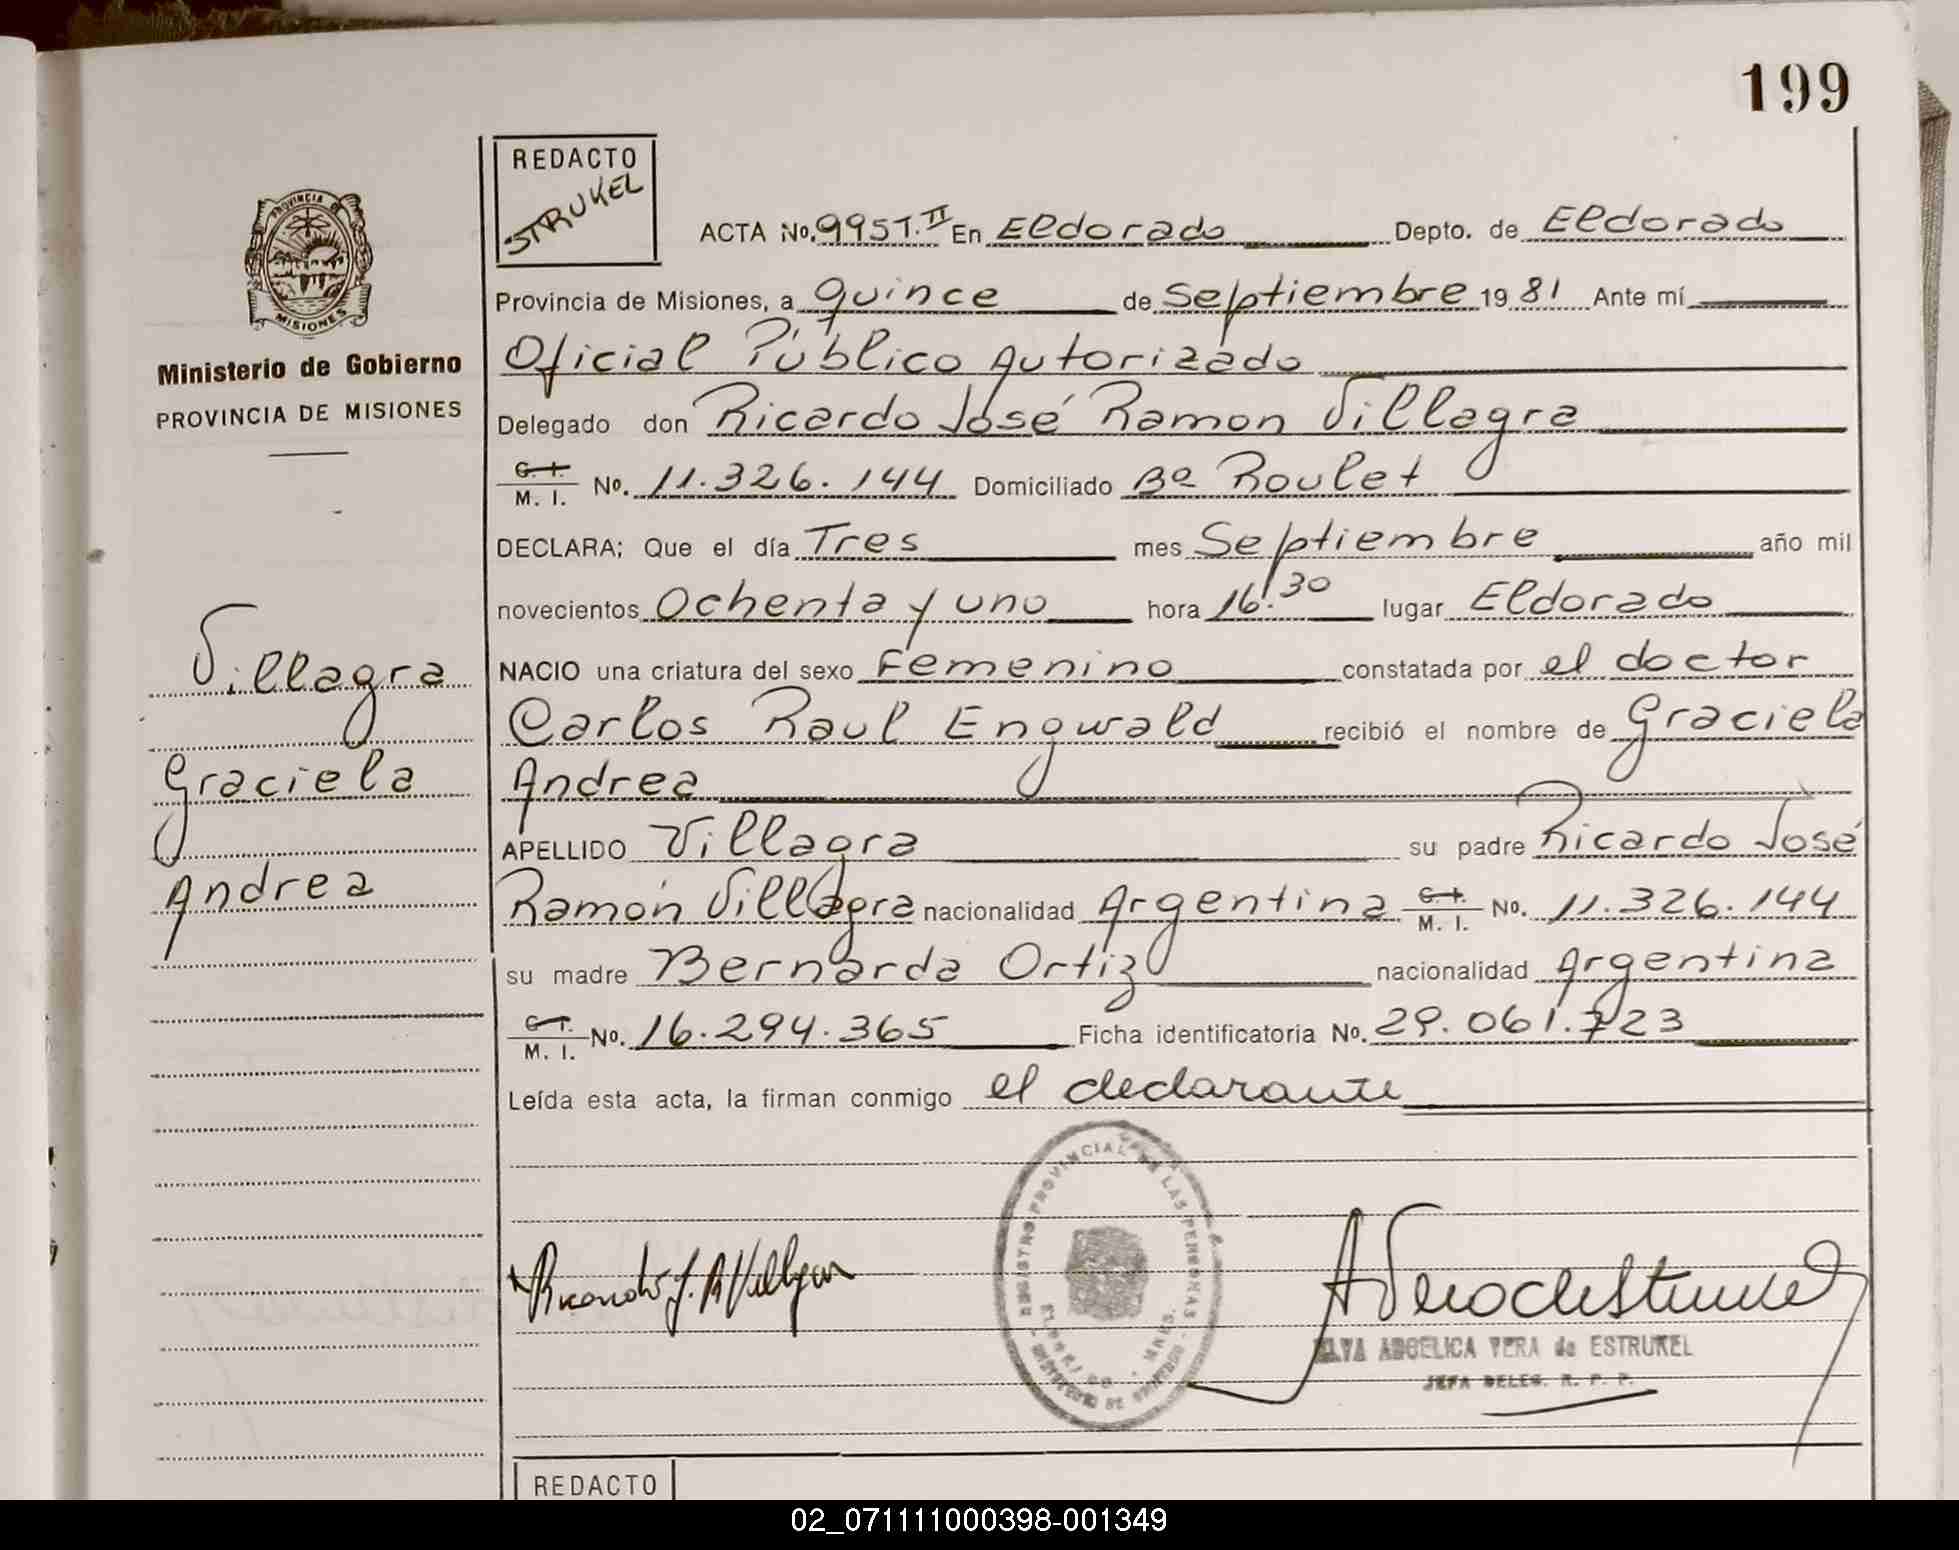 199
REDACTO
STRUKEL
ACTA No. 995 T. II En Eldorado Depto. de Eldorado
Provincia de Misiones, a quince de Septiembre 1981 Ante mí
Oficial Público Autorizado
Delegado don Ricardo José Ramon Villagra
C. I. M. I. No. 11.326.144 Domiciliado Bº Roulet
DECLARA; Que el día Tres mes Septiembre año mil
novecientos Ochenta y uno hora 16.30 lugar Eldorado
NACIO una criatura del sexo Femenino constatada por el doctor
Carlos Raul Engwald recibió el nombre de Graciela
Andrea
APELLIDO Villagra su padre Ricardo José
Ramón Villagra nacionalidad Argentina C. I. M. I. No. 11.326.144
su madre Bernarda Ortiz nacionalidad Argentina
C. I. M. I. No. 16.294.365 Ficha identificatoria No. 29.061.723
Leída esta acta, la firman conmigo el declarante
PROVINCIA DE
MISIONES
Ministerio de Gobierno
PROVINCIA DE MISIONES
Villagra
Graciela
Andrea
REGISTRO PROVINCIAL DE LAS PERSONAS
Ricardo J. R. Villagra
ELVA ANGELICA VERA de ESTRUKEL
JEFA DELEG. R. P. P.
REDACTO
02_071111000398-001349